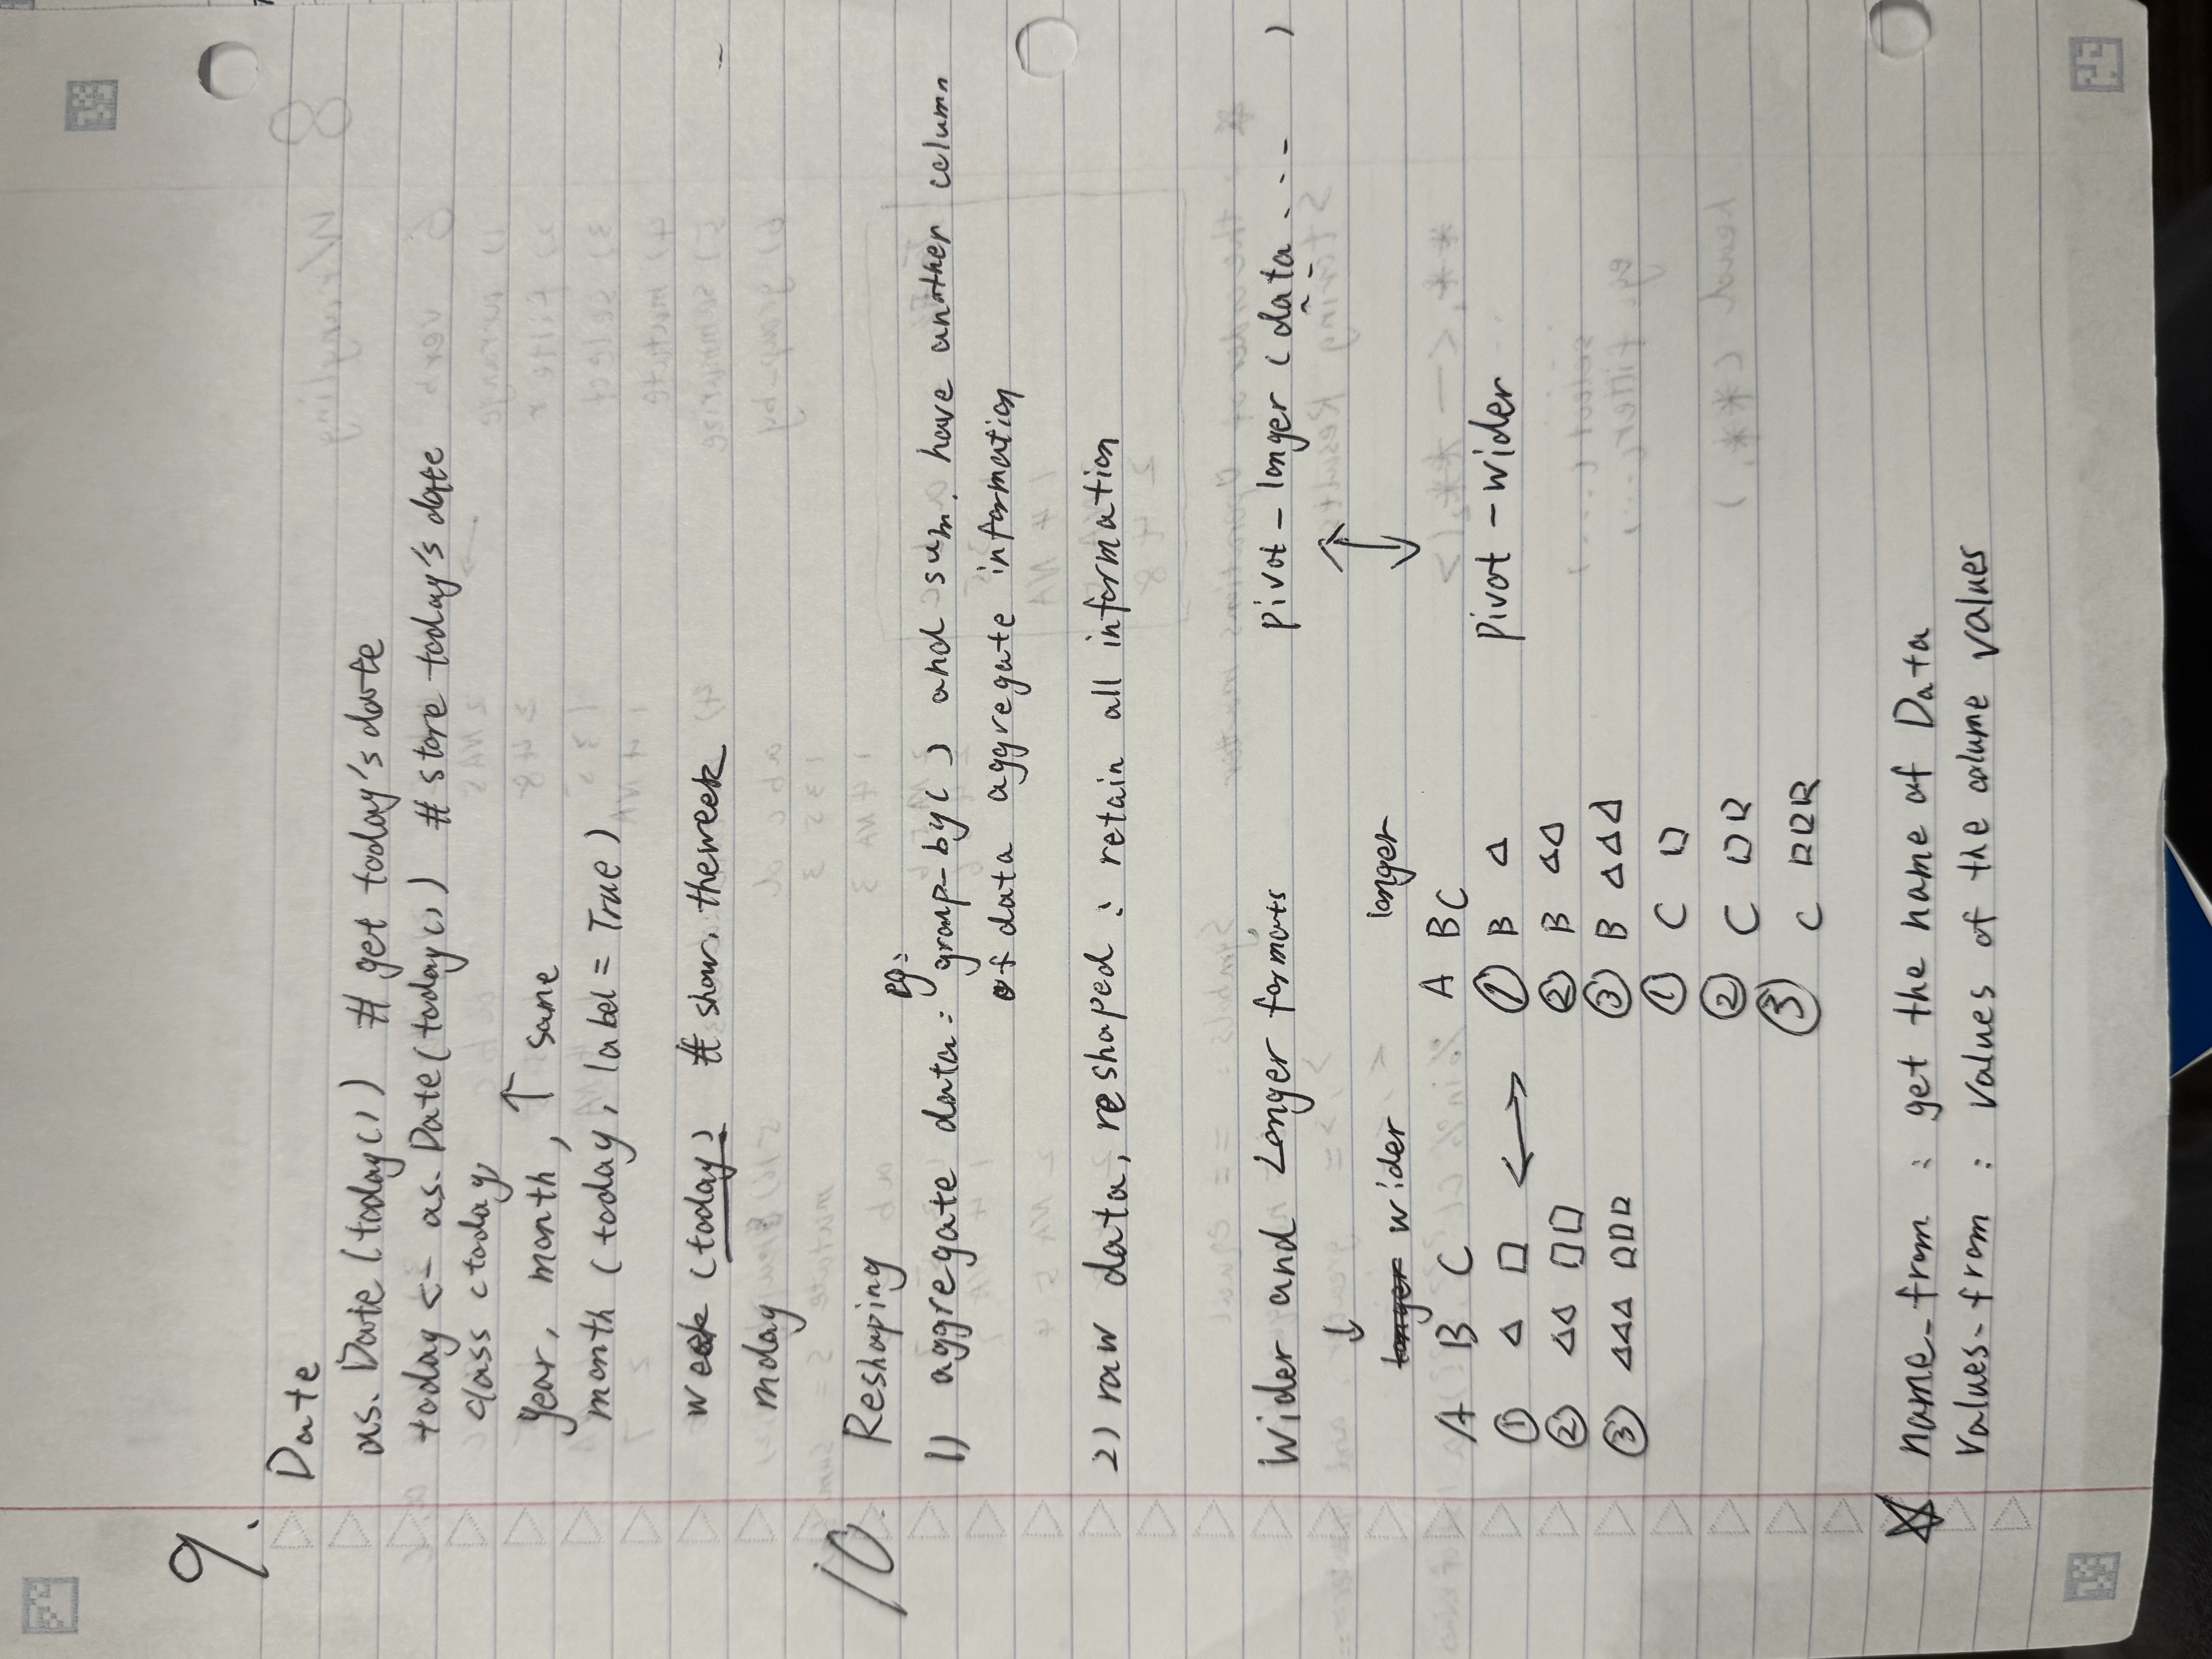 9.
Date
as. Date (today()) # get today's date
today <- as. Date (today()) # store today's date
class (today)
year, month, ↑ same
month (today, label = True)
week (today) # show, the week
mday
10. Reshaping
eg:
1) aggregate data: group-by( ) and sum. have another column
of data aggregate information
2) raw data, reshaped : retain all information
Wider and Longer formats pivot-longer (data ... )
↓
longer wider longer
A B C A BC
① △ □ ① B △
pivot-wider
② △△ □□ ② B △△
③ △△△ □□□ ③ B △△△
① C □
② C □□
③ C □□□
☆ name-from : get the name of Data
Values-from : Values of the colume values